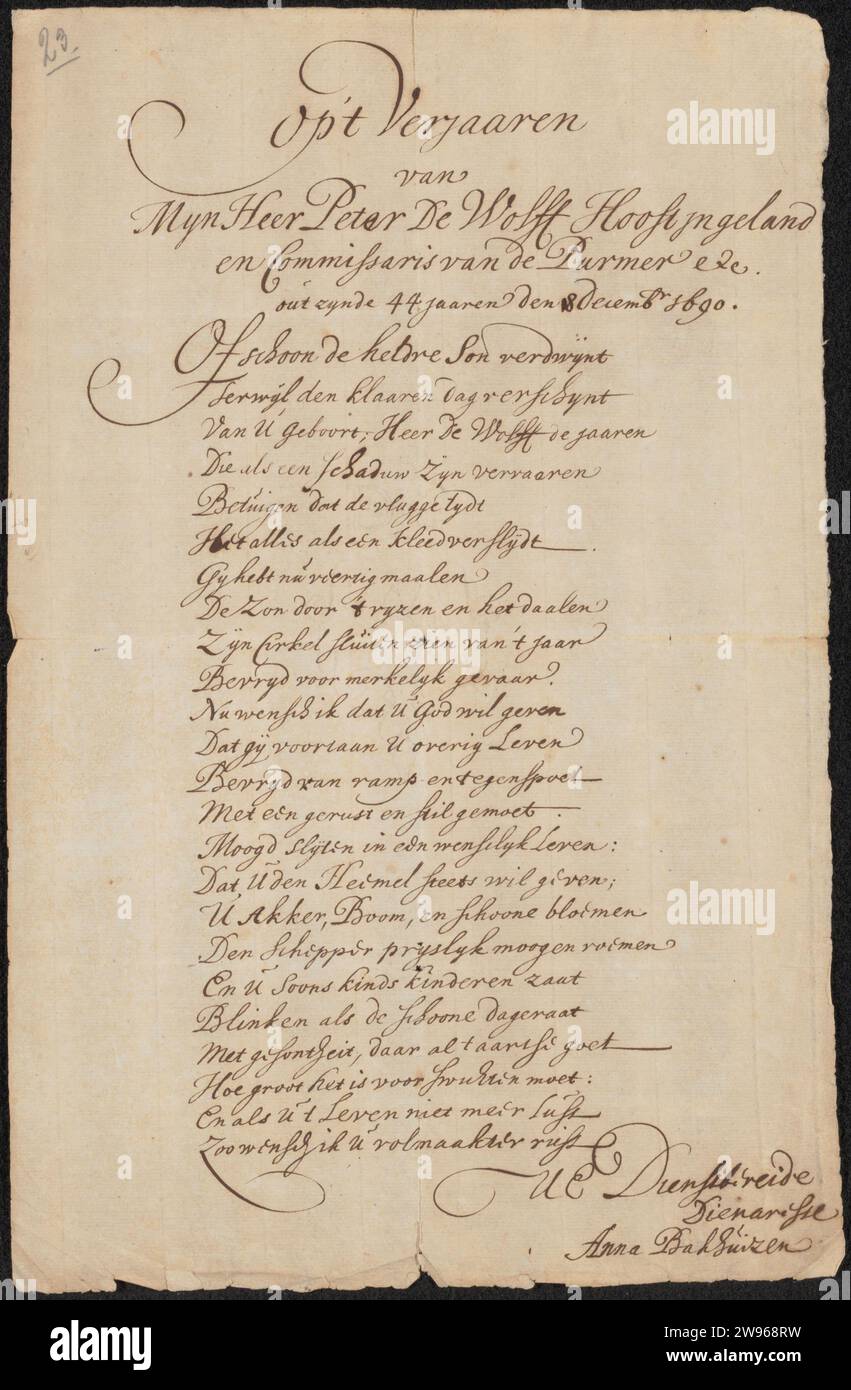 23.
Op't Verjaaren
van
Myn Heer Peter De Wolff Hooft yngeland
en Commissaris van de Purmer etc.
out zynde 44 jaaren den 8 decembr 1690.
Ofschoon de heldre Son verdwynt
Terwyl den klaaren dag verschynt
Van U geboort; Heer De Wolff de jaaren
Die als een schaduw zyn vervaaren
Betuigen dat de vlugge tydt
Het alles als een kleed verslydt
Gy hebt nu veertig maalen
De Zon door 't ryzen en het daalen
Zyn Cirkel sluiten zien van 't jaar
Bevryd voor merkelyk gevaar.
Nu wensch ik dat U God wil geven
Dat gy voortaan U overig Leven
Bevryd van ramp en tegenspoet
Met een gerust en stil gemoet.
Moogd slyten in een wenschlyk Leven:
Dat U den Heemel steets wil geven;
U Akker, Boom, en schoone bloemen
Den schepper pryslyk moogen roemen
En U Soons kinds kinderen zaat
Blinken als de schoone dageraat
Met gesontheit, daar al 't aartse goet
Hoe groot het is voor swichten moet:
En als U 't Leven niet meer Lust
Zoo wensch ik U volmaakter rust
UE Dienstbereide
Dienaresse
Anna Bakhuizen
alamy
Image ID: 2W968RW
www.alamy.com